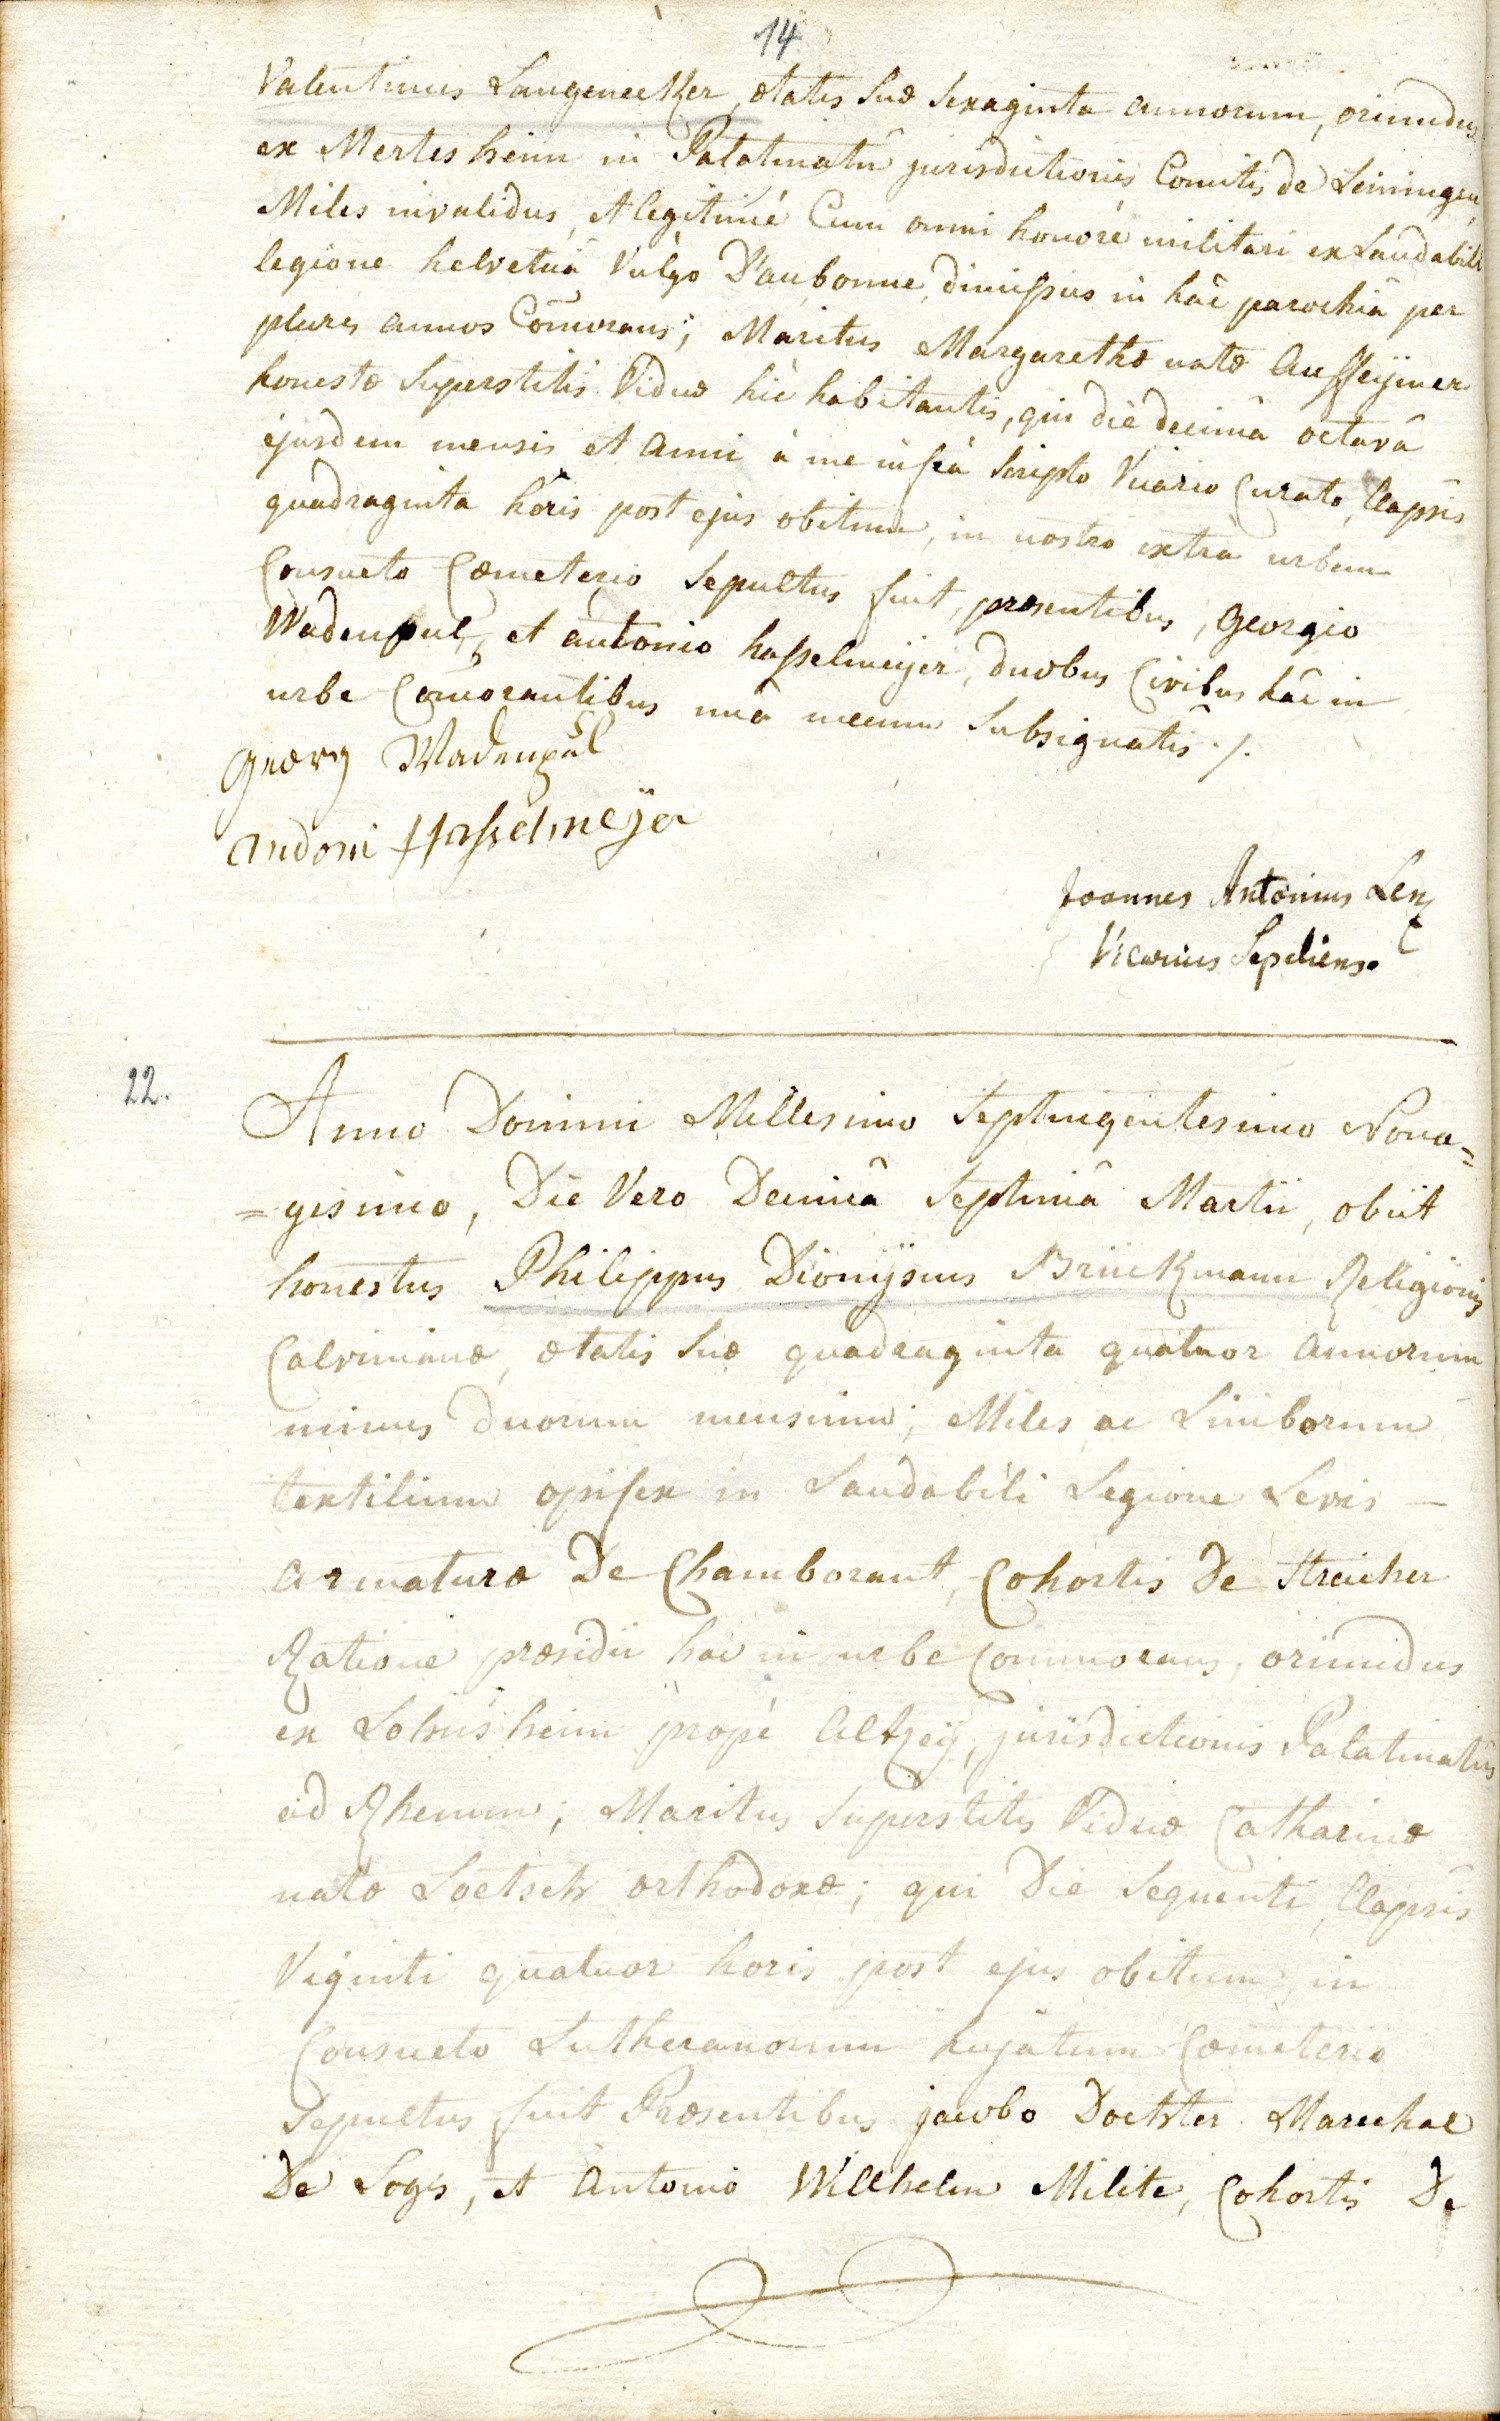 14
Valentinus Langenecker, ætatis suæ sexaginta annorum, oriundus
ex Mertesheim in Palatinatû jurisdictionis Comitis de Leiningen,
Miles invalidus, et legitimé Cum omni honoré militari ex Laudabili
legione helveticâ Vulgo D'aubonne, dimissus in hâc parochiâ per
plures annos Com̄orans; Maritus Margarethæ natæ Auffeijmer
honestæ Superstitis Viduæ hic habitantis, qui diè decimâ octavâ
ejusdem mensis et anni à me infrà scripto Vicario Curato, Elapsis
quadraginta horis post ejus obitum, in nostro extrà urbem
Consueto Cœmeterio Sepultus fuit, præsentibus, georgio
Wadenpul, et antonio hasselmeijer, duobus Civibus hâc in
urbe Com̄orantibus unà mecum Subsignatis ./.
georg Wadenpul
andoni Hasselmeÿer
Joannes Antonius Lenz
Vicarius Sepeliens.
22.
Anno Domini Millesimo Septingentesimo Nona=
=gesimo, Die Vero Decimâ Septimâ Martii, obiit
honestus Philippus Dionijsius Brückmann Religionis
Calvinianæ, ætatis suæ quadraginta quatuor annorum
minus duorum mensium; Miles ac Limborum
textilium opifex in Laudabili Legione Levis –
armaturæ De Chamborant, Cohortis De Streicher
Ratione præsidii hac in urbe Commorans, oriundus
ex Lohnsheim propè Altzeij, jurisdictionis Palatinatûs
ad Rhenum; Maritus Superstitis Viduæ Catharinæ
natæ Loetsch orthodoxæ; qui Die Sequenti, Elapsis
Viginti quatuor horis post ejus obitum, in
Consueto Lutheranorum hujatum Cœmeterio
Sepultus fuit Præsentibus jacobo Dochter Marechal
De Logis, et Antonio Willhelm Milite, Cohortis De